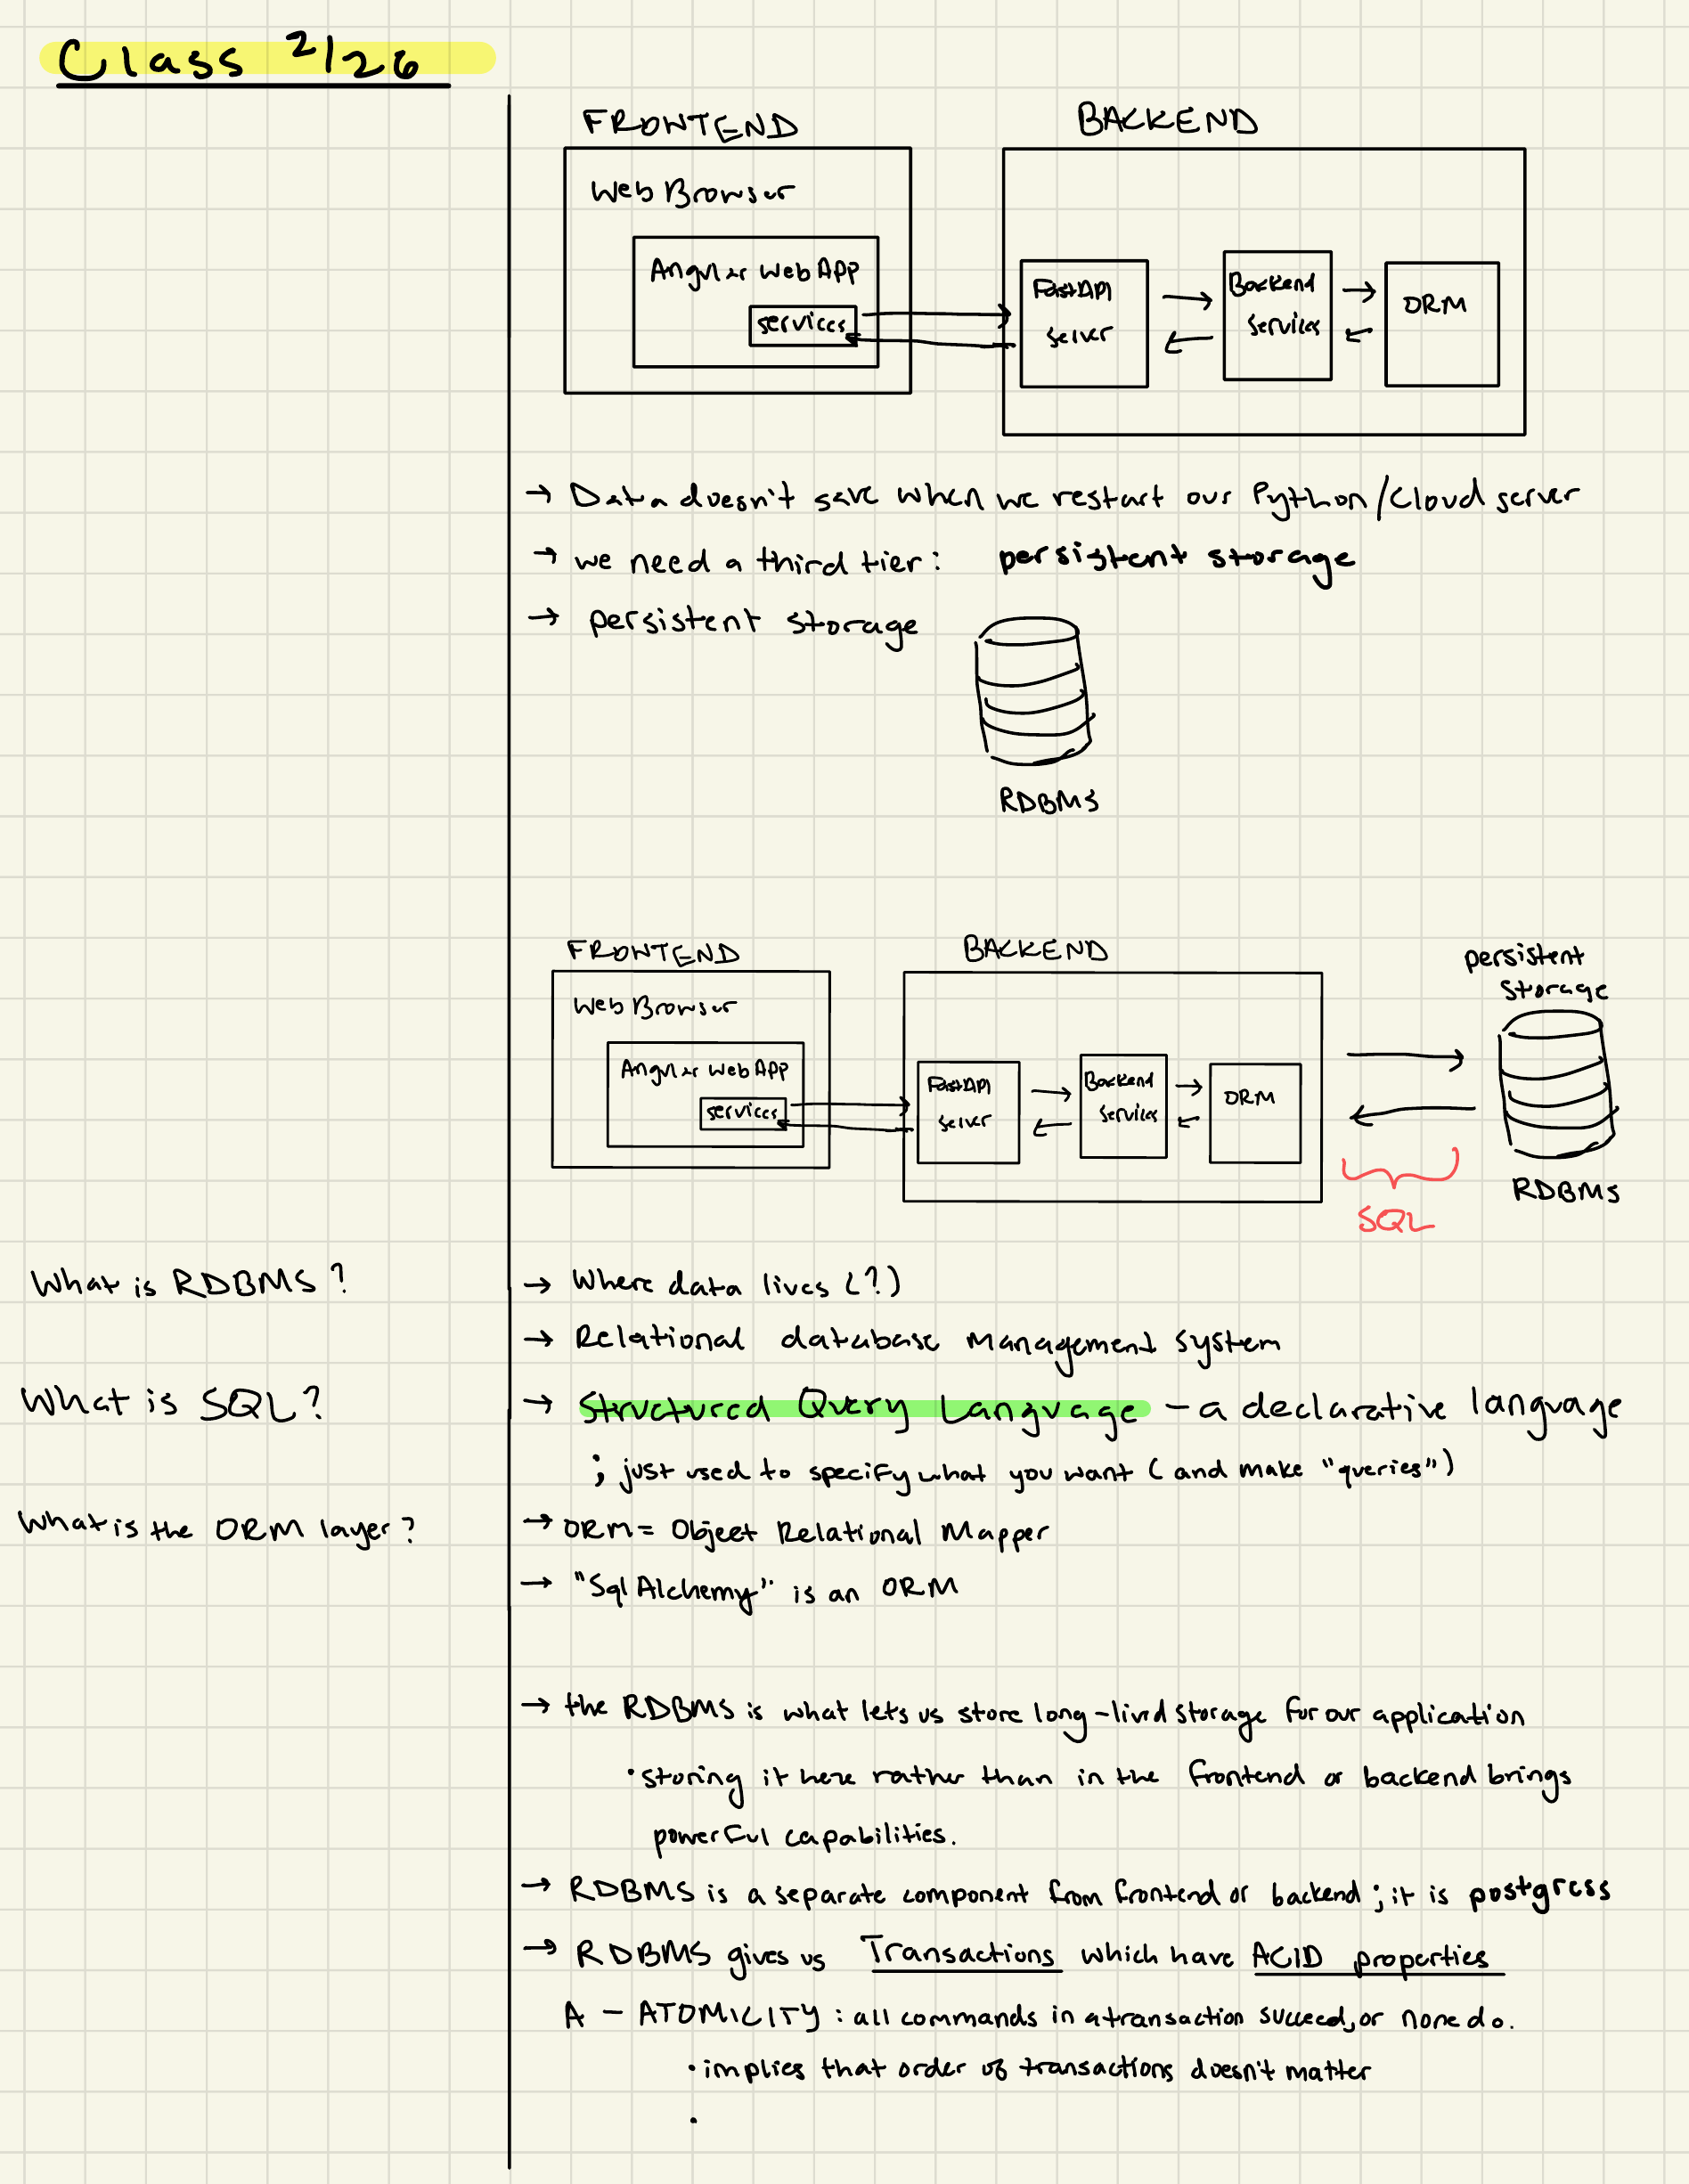 Class 2/26
FRONTEND
BACKEND
Web Browser
Angular Web App
services
FastAPI
server
Backend
Services
ORM
→ Data doesn't save when we restart our Python/Cloud server
→ we need a third tier: persistent storage
→ persistent storage
RDBMS
FRONTEND
BACKEND
persistent
storage
Web Browser
Angular Web App
services
FastAPI
server
Backend
Services
ORM
RDBMS
SQL
What is RDBMS?
→ Where data lives (?)
→ Relational database management system
What is SQL?
→ Structured Query Language - a declarative language
; just used to specify what you want (and make "queries")
What is the ORM layer?
→ ORM = Object Relational Mapper
→ "SqlAlchemy" is an ORM
→ the RDBMS is what lets us store long-lived storage for our application
• storing it here rather than in the frontend or backend brings
powerful capabilities.
→ RDBMS is a separate component from frontend or backend; it is postgress
→ RDBMS gives us Transactions which have ACID properties
A - ATOMICITY: all commands in a transaction succeed, or none do.
• implies that order of transactions doesn't matter
•